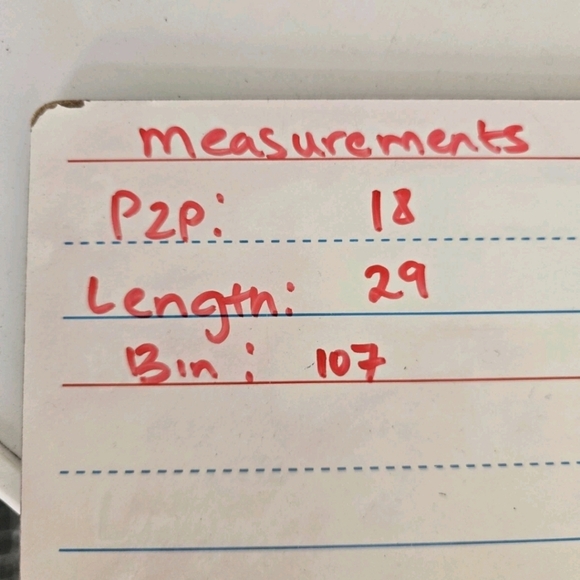 measurements
P2P: 18
Length: 29
Bin: 107